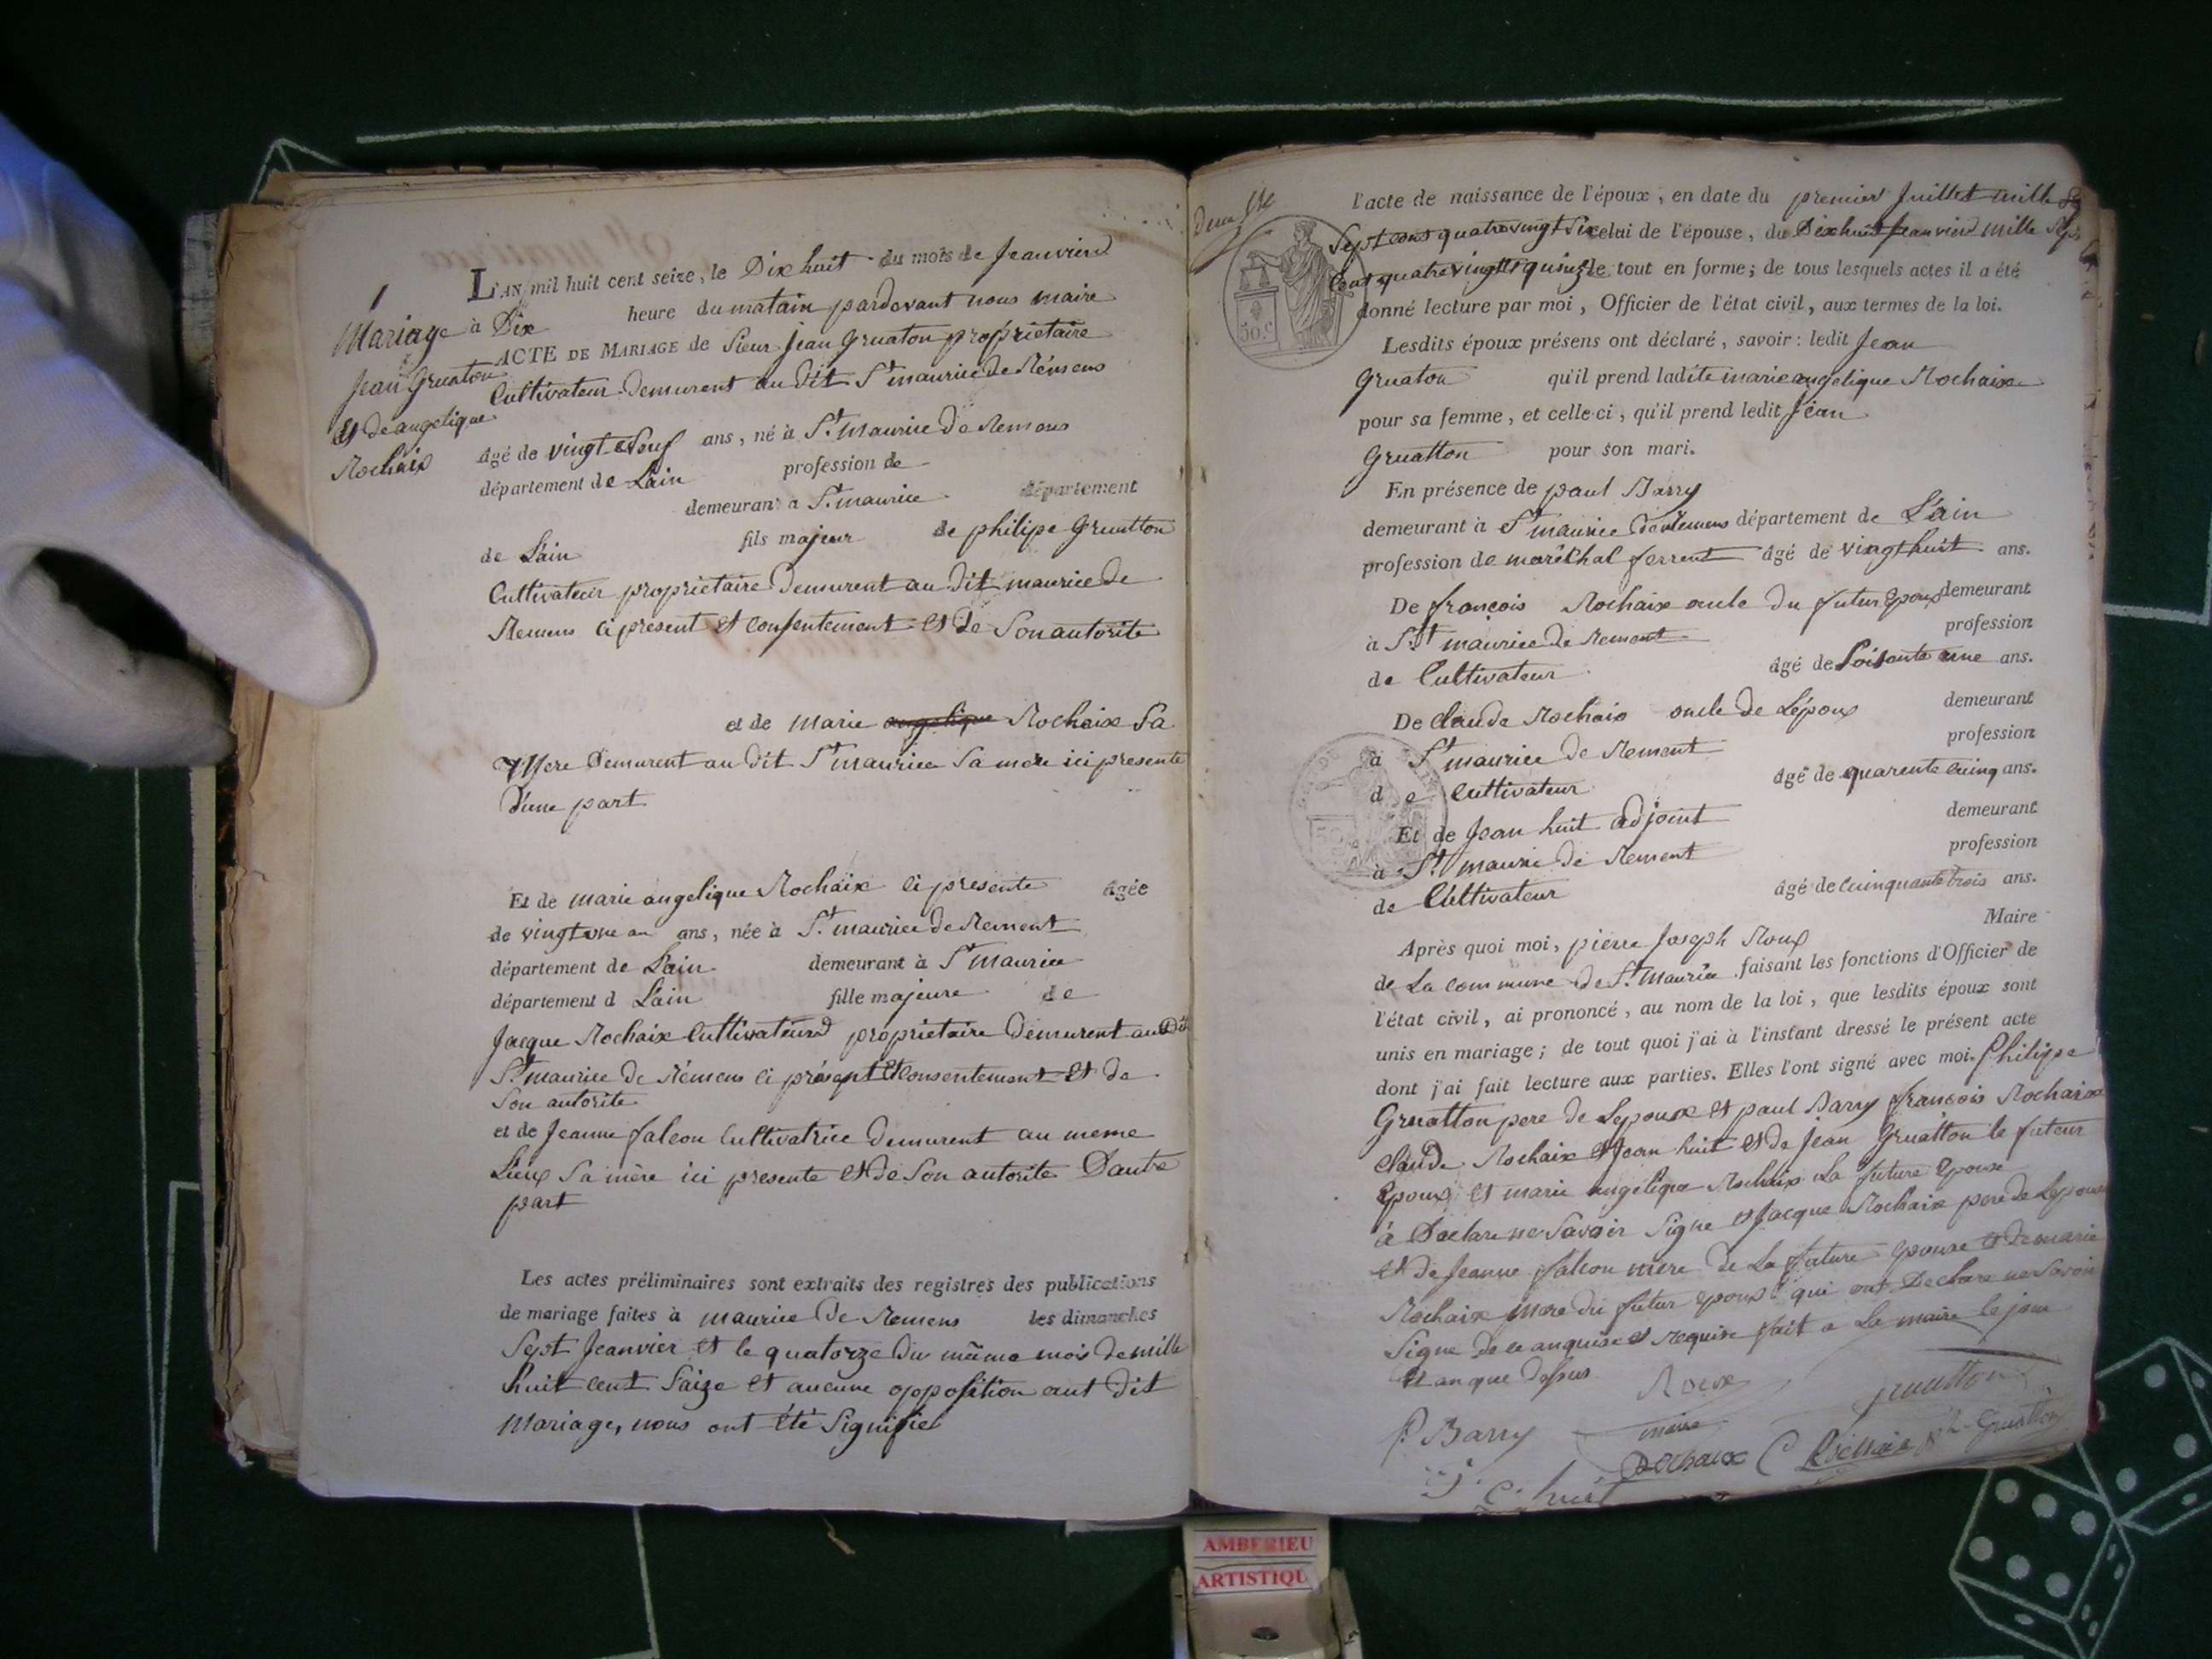 1
Mariage
Jean Gruaton
Et de angelique
Rochaix
L'AN mil huit cent seize, le Dix huit du mois de Jeanvierd
à Dix heure du matain pardevant nous maire
ACTE DE MARIAGE de Sieur Jean Gruaton propriètaire
Cultivateur demurent au dit St maurice de Rémens
âgé de vingt Neuf ans, né à St. maurice de Remens
département de Lain profession de
demeurant à St. maurice département
de Lain fils majeur de philipe Gruatton
Cultivateur propriétaire demurent au dit maurice de
Remens ci présent et consentement et de Son autorite
et de marie angelique Rochaix Sa
Mere demurent au dit St maurice Sa mere ici presente
D'une part
Et de marie angelique Rochaix ci presente âgée
de vingt une an ans, née à St. maurice de Rement
département de Lain demeurant à St maurice
département d Lain fille majeure de
Jacque Rochaix Cultivateurd propriétaire demurent au dit
St. maurice de Rémens ci présent et Consentement et de
Son autorite
et de Jeanne falcon Cultivatrice demurent au meme
Lieux Sa mère ici presente et de Son autorite Dautre
part
Les actes préliminaires sont extraits des registres des publications
de mariage faites à maurice de Remens les dimanches
Sept Jeanvier et le quatorze du mâme mois de mille
huit cent Saize et aucune opposition aut dit
Mariage, nous ont été Signifiel
l'acte de naissance de l'époux, en date du premier Juillet mille
Sept cens quatre vingt Six celui de l'épouse, du Dix huit Jeanvierd mille Sept
Cent quatre vingt et quinze le tout en forme; de tous lesquels actes il a été
donné lecture par moi, Officier de l'état civil, aux termes de la loi.
50.c
Lesdits époux présens ont déclaré, savoir: ledit Jean
Gruaton qu'il prend ladite marie angelique Rochaix
pour sa femme, et celle-ci, qu'il prend ledit Jean
Gruatton pour son mari.
En présence de paul Barry
demeurant à St maurice de Remens département de Lain
profession de maréchal ferrent âgé de vingt huit ans.
De françois Rochaix oncle du futur Epoux demeurant
à St maurice de Rement profession
de Cultivateur âgé de Soisante une ans.
De Claude Rochaix oncle de Lépoux demeurant
à St maurice de Rement profession
de Cultivateur âgé de quarente cuinq ans.
Et de Jean huit adjoint demeurant
à St. maurice de Rement profession
de Cultivateur âgé de Cuinquante trois ans.
Après quoi moi, pierre Joseph Roux Maire
de La commune de St. Maurice faisant les fonctions d'Officier de
l'état civil, ai prononcé, au nom de la loi, que lesdits époux sont
unis en mariage; de tout quoi j'ai à l'instant dressé le présent acte
dont j'ai fait lecture aux parties. Elles l'ont signé avec moi. Philippe
Gruatton pere de Lepoux et paul Barry françois Rochaix
Claude Rochaix et Jean huit et de Jean Gruatton le futeur
Epoux et marie angelique Rochaix La future Epouse
à Déclare ne Savoir Signe et Jacque Rochaix pere de Lepouse
et de Jeanne falcon mere de La future Epouse et de marie
Rochaix mere du futur epoux qui ont Declare ne Savoir
Signe de ce anquise et Requise fait a La maire le jour
Et an que dessus
Roux
maire
gruatton
P. Barry
Rochaix C Rochaix ph Gruatton
huit
AMBERIEU
ARTISTIQU